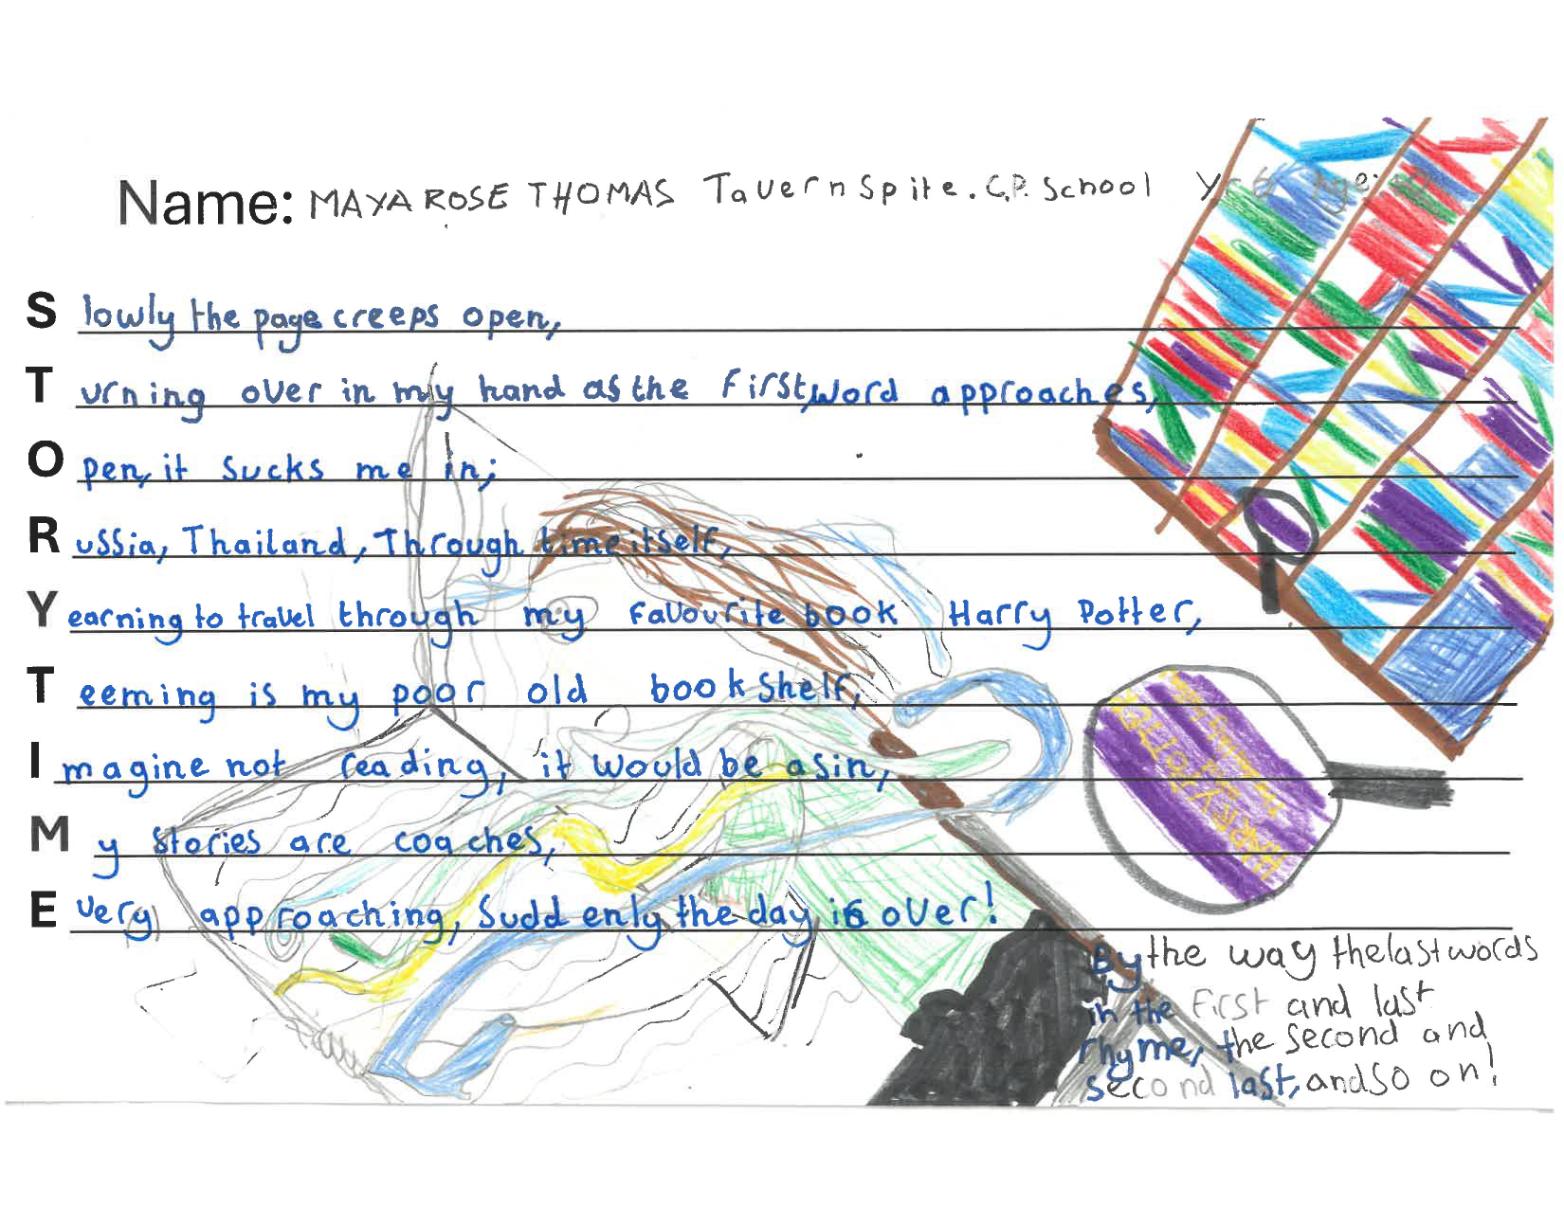 Name: MAYA ROSE THOMAS Tavernspite. C.P. School Yr 6
Slowly the page creeps open,
Turning over in my hand as the first, word approaches,
Open, it sucks me in;
Russia, Thailand, Through time itself,
Yearning to travel through my favourite book Harry Potter,
Teeming is my poor old bookshelf,
Imagine not reading, it would be a sin,
My stories are coaches,
Every approaching, Suddenly the day is over!
By the way the last words
in the first and last
rhyme, the second and
second last, and so on!